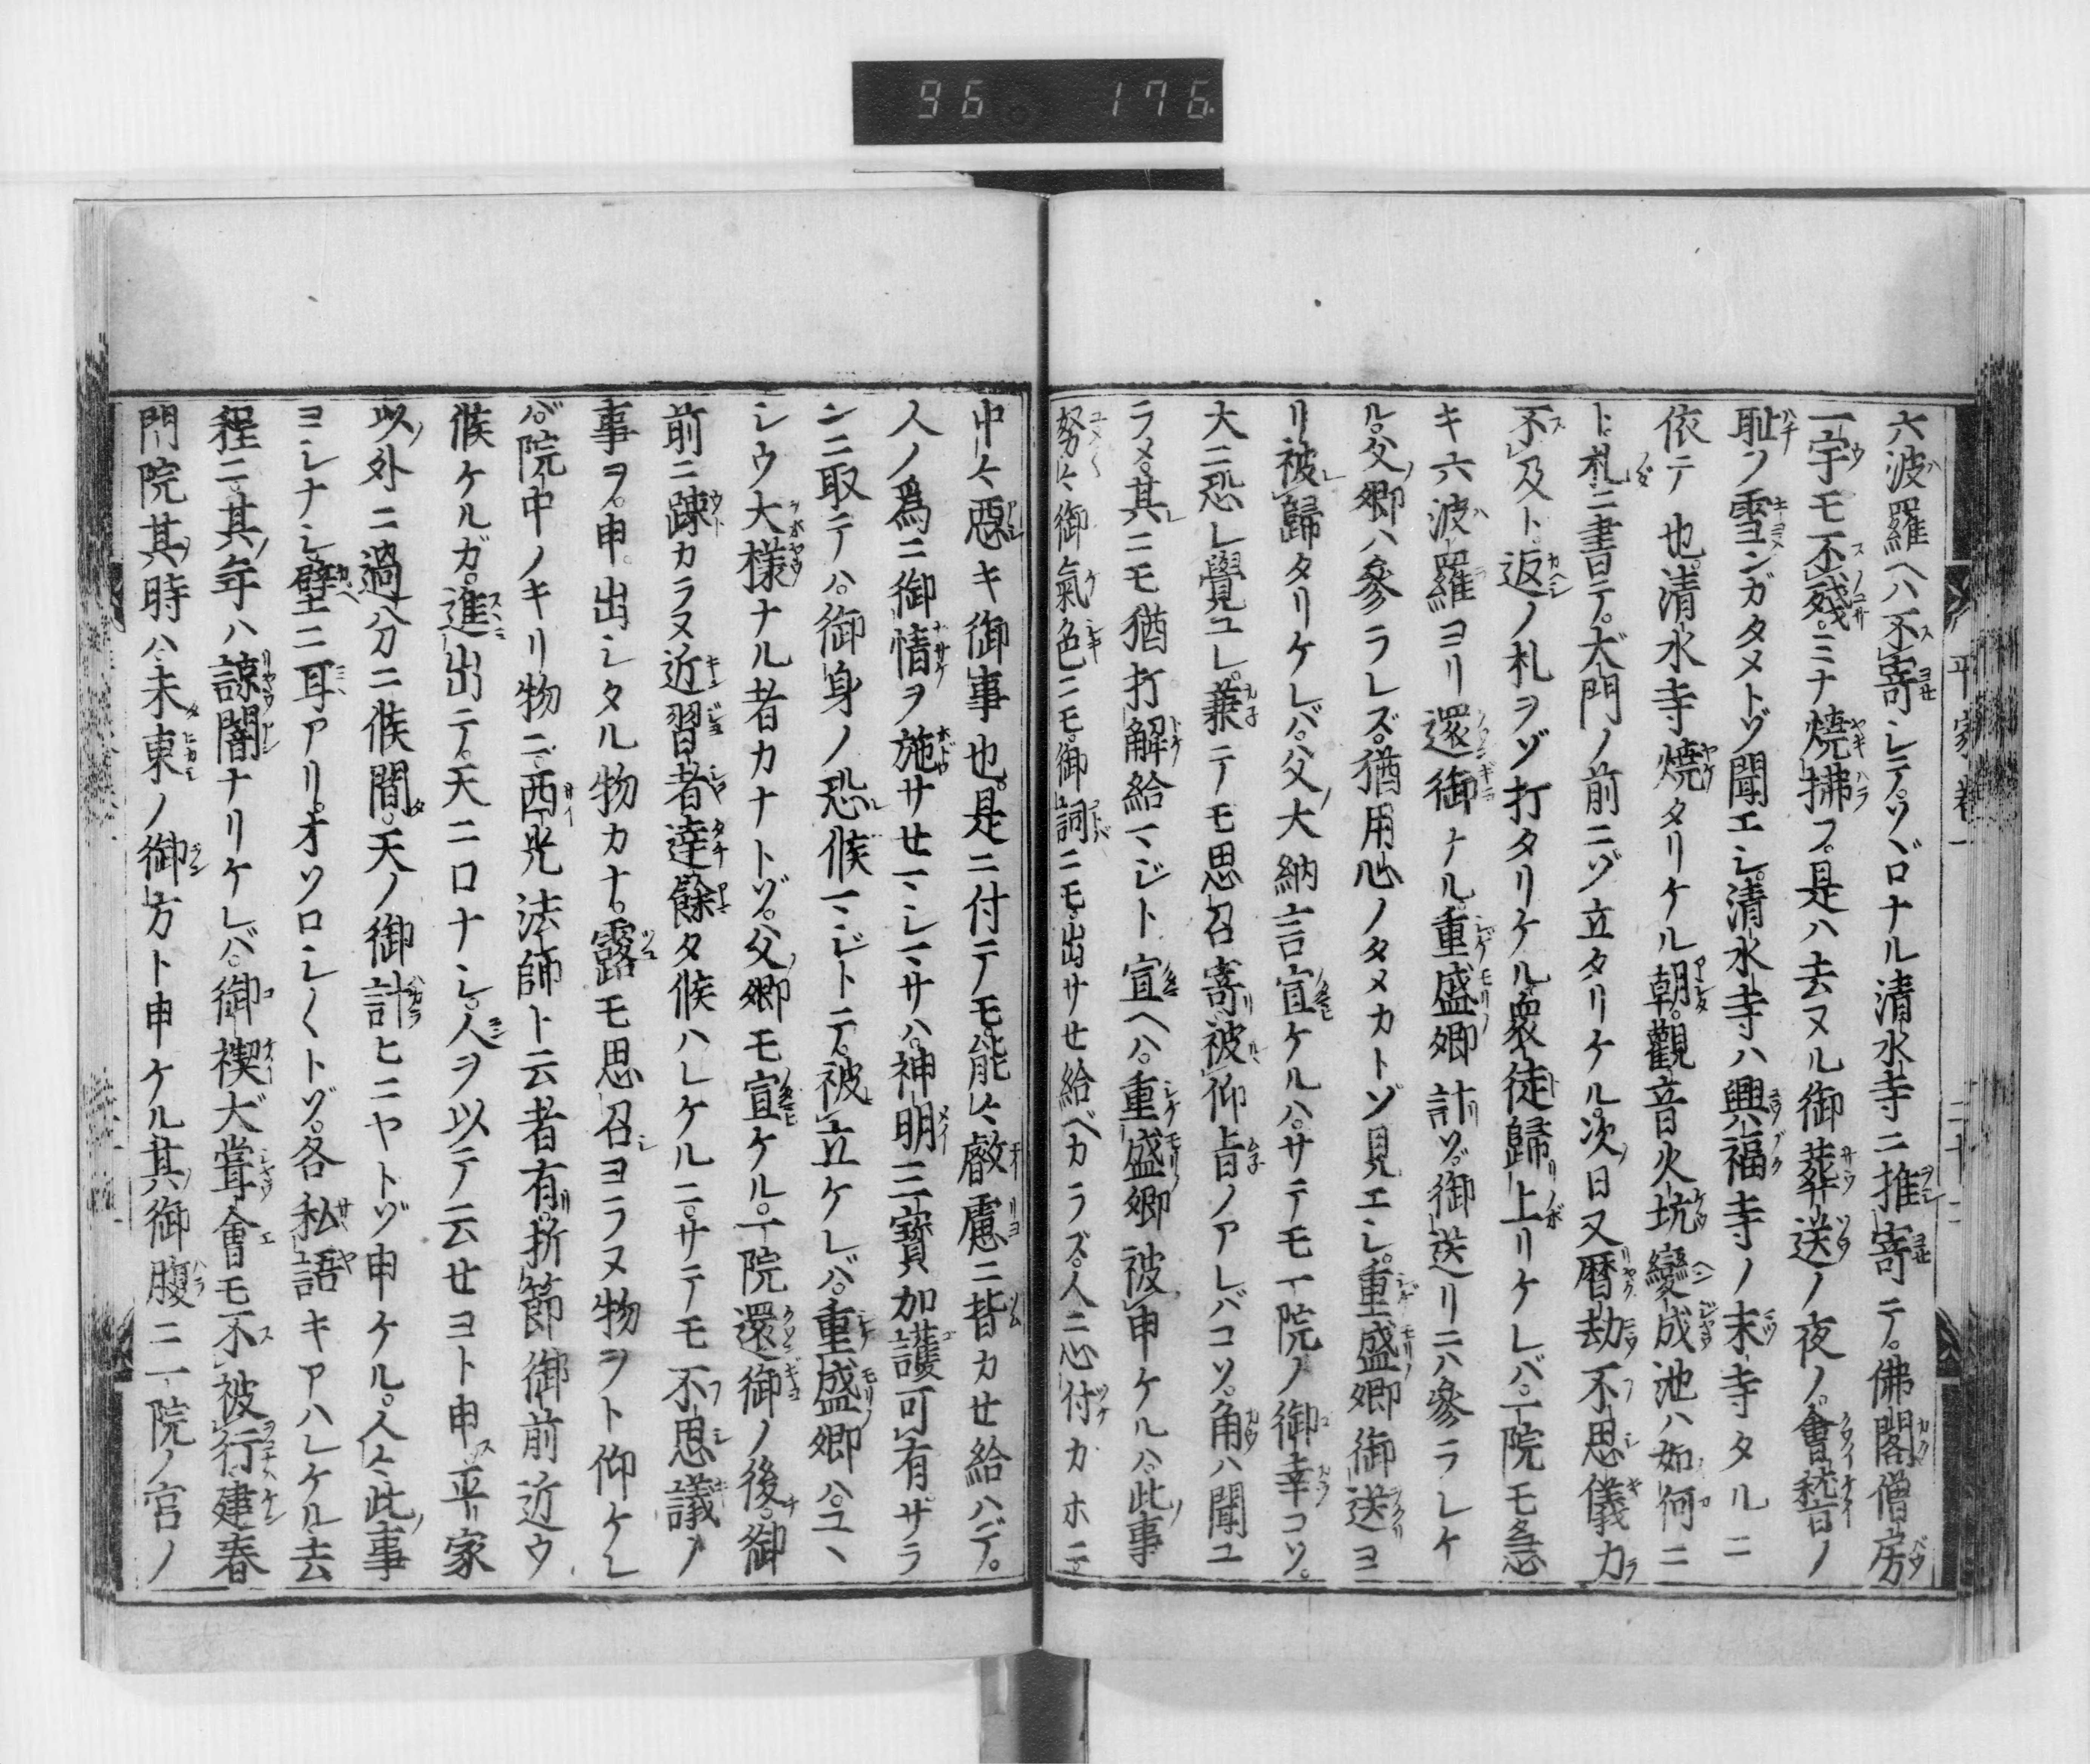 96 176
六波羅ヘハ不寄シテ。ソヾロナル清水寺ニ推寄テ。佛閣僧房
一宇モ不殘。ミナ燒拂フ。是ハ去ヌル御葬送ノ夜ノ。會稽ノ
耻ヲ雪ンガタメトゾ聞エシ。清水寺ハ興福寺ノ末寺タルニ
依テ也。清水寺燒タリケル朝。觀音火坑變成池ハ如何ニ
ト。札ニ書テ。大門ノ前ニゾ立タリケル。次日又暦劫不思儀力
不及ト。返ノ札ヲゾ打タリケル。衆徒歸上リケレバ。一院モ急
キ六波羅ヨリ還御ナル。重盛卿計ソ。御送リニハ參ラレケ
ル。父卿ハ參ラレズ。猶用心ノタメカトゾ見エシ。重盛卿御送ヨ
リ被歸タリケレバ。父大納言宣ケルハ。サテモ一院ノ御幸コソ。
大ニ恐レ覺ユレ。兼テモ思召寄被仰旨ノアレバコソ。角ハ聞ユ
ラメ。其ニモ猶打解給マジト宣ヘハ。重盛卿被申ケルハ。此事
努々御氣色ニモ。御詞ニモ。出サセ給ベカラズ。人ニ心付カホニテ
中々惡キ御事也。是ニ付テモ。能々叡慮ニ背カセ給ハデ。
人ノ爲ニ御情ヲ施サセマシマサハ。神明三寶加護可有。サラ
ンニ取テハ。御身ノ恐候マジトテ。被立ケレバ。重盛卿ハ。ユヽ
シウ大様ナル者カナトゾ。父卿モ宣ケル。一院還御ノ後。御
前ニ疎カラヌ近習者達餘タ候ハレケルニ。サテモ不思議ノ
事ヲ。申出シタル物カナ。露モ思召ヨラヌ物ヲト仰ケレ
バ。院中ノキリ物ニ。西光法師ト云者有。折節御前近ウ
候ケルガ。進出テ。天ニロナシ。人ヲ以テ云セヨト申。平家
以外ニ過分ニ候間。天ノ御計ヒニヤトゾ申ケル。人々此事
ヨシナシ。壁ニ耳アリ。オソロシ〱トゾ。各私語キアハレケル。去
程ニ。其年ハ諒闇ナリケレバ。御禊大嘗會モ不被行。建春
門院其時ハ。未東ノ御方ト申ケル。其御腹ニ一院ノ宮ノ
平家卷一 二十二